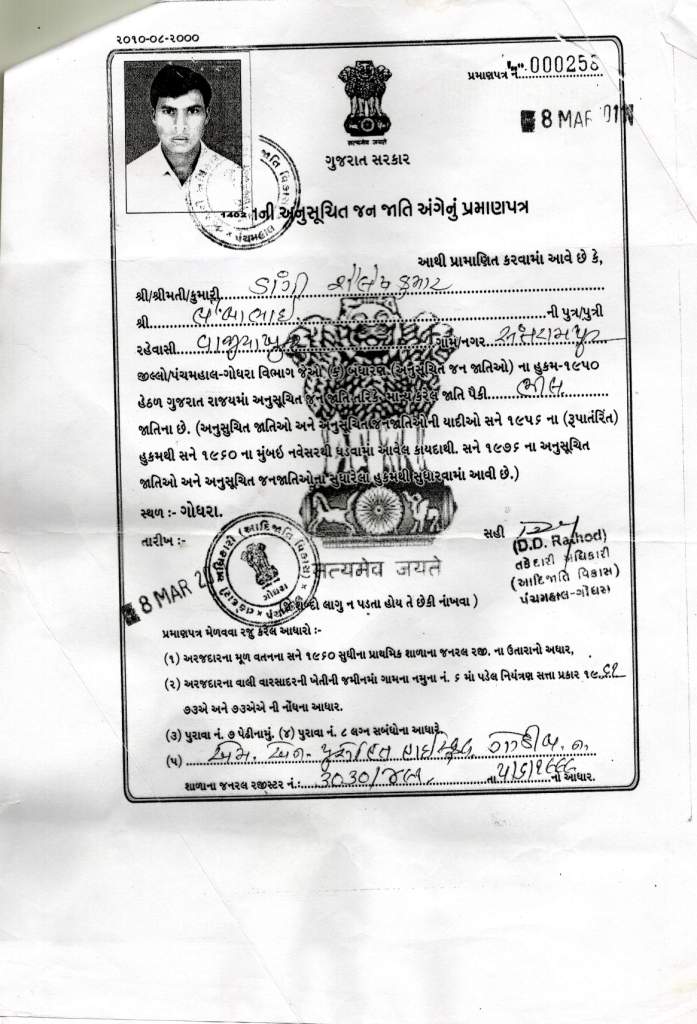 ૨૦૧૦-૦૮-૨૦૦૦
પ્રમાણપત્ર નં. 000258
8 MAR 2011
सत्यमेव जयते
ગુજરાત સરકાર
અનુસૂચિત જન જાતિ અંગેનું પ્રમાણપત્ર
પંચમહાલ
આથી પ્રામાણિત કરવામાં આવે છે કે,
શ્રી/શ્રીમતી/કુમારી ડાંગી શૈલેષકુમાર
શ્રી ની પુત્ર/પુત્રી
રહેવાસી ગામ/નગર સંતરામપુર
જીલ્લો/પંચમહાલ-ગોધરા વિભાગ જેઓ (ક) બંધારણ (અનુસૂચિત જન જાતિઓ) ના હુકમ-૧૯૫૦
હેઠળ ગુજરાત રાજયમાં અનુસૂચિત જન જાતિ તરિકે માન્ય કરેલ જાતિ પૈકી ભીલ
જાતિના છે. (અનુસુચિત જાતિઓ અને અનુસુચિત જનજાતિઓની યાદીઓ સને ૧૯૫૬ ના (રૂપાતંરિત)
હુકમથી સને ૧૯૬૦ ના મુંબઇ નવેસરથી ઘડવામાં આવેલ કાયદાથી. સને ૧૯૭૬ ના અનુસૂચિત
જાતિઓ અને અનુસૂચિત જનજાતિઓના સુધારેલા હુકમથી સુધારવામાં આવી છે.)
સ્થળ :- ગોધરા.
તારીખ :-
8 MAR
ગોધરા
सत्यमेव जयते
સહી
(D.D. Rathod)
તકેદારી અધિકારી
(આદિજાતિ વિકાસ)
પંચમહાલ-ગોધરા
શબ્દો લાગુ ન પડતા હોય તે છેકી નાંખવા )
પ્રમાણપત્ર મેળવવા રજુ કરેલ આધારો :-
(૧) અરજદારના મૂળ વતનના સને ૧૯૬૦ સુધીના પ્રાથમિક શાળાના જનરલ રજી. ના ઉતારાનો અધાર,
(૨) અરજદારના વાલી વારસાદરની ખેતીની જમીનમાં ગામના નમુના નં. ૬ માં પડેલ નિયંત્રણ સત્તા પ્રકાર ૧૯.૬૧
૭૩એ અને ૭૩એએ ની નોંધના આધાર.
(૩) પુરાવા નં. ૭ પેઢીનામું. (૪) પુરાવા નં. ૮ લગ્ન સબંધોના આધારે
(૫) એમ. એન. હાઇસ્કુલ
શાળાના જનરલ રજીસ્ટર નં.: ૩૦૩૦ તા ૫/૬/૧૯૯૯ નો આધાર.